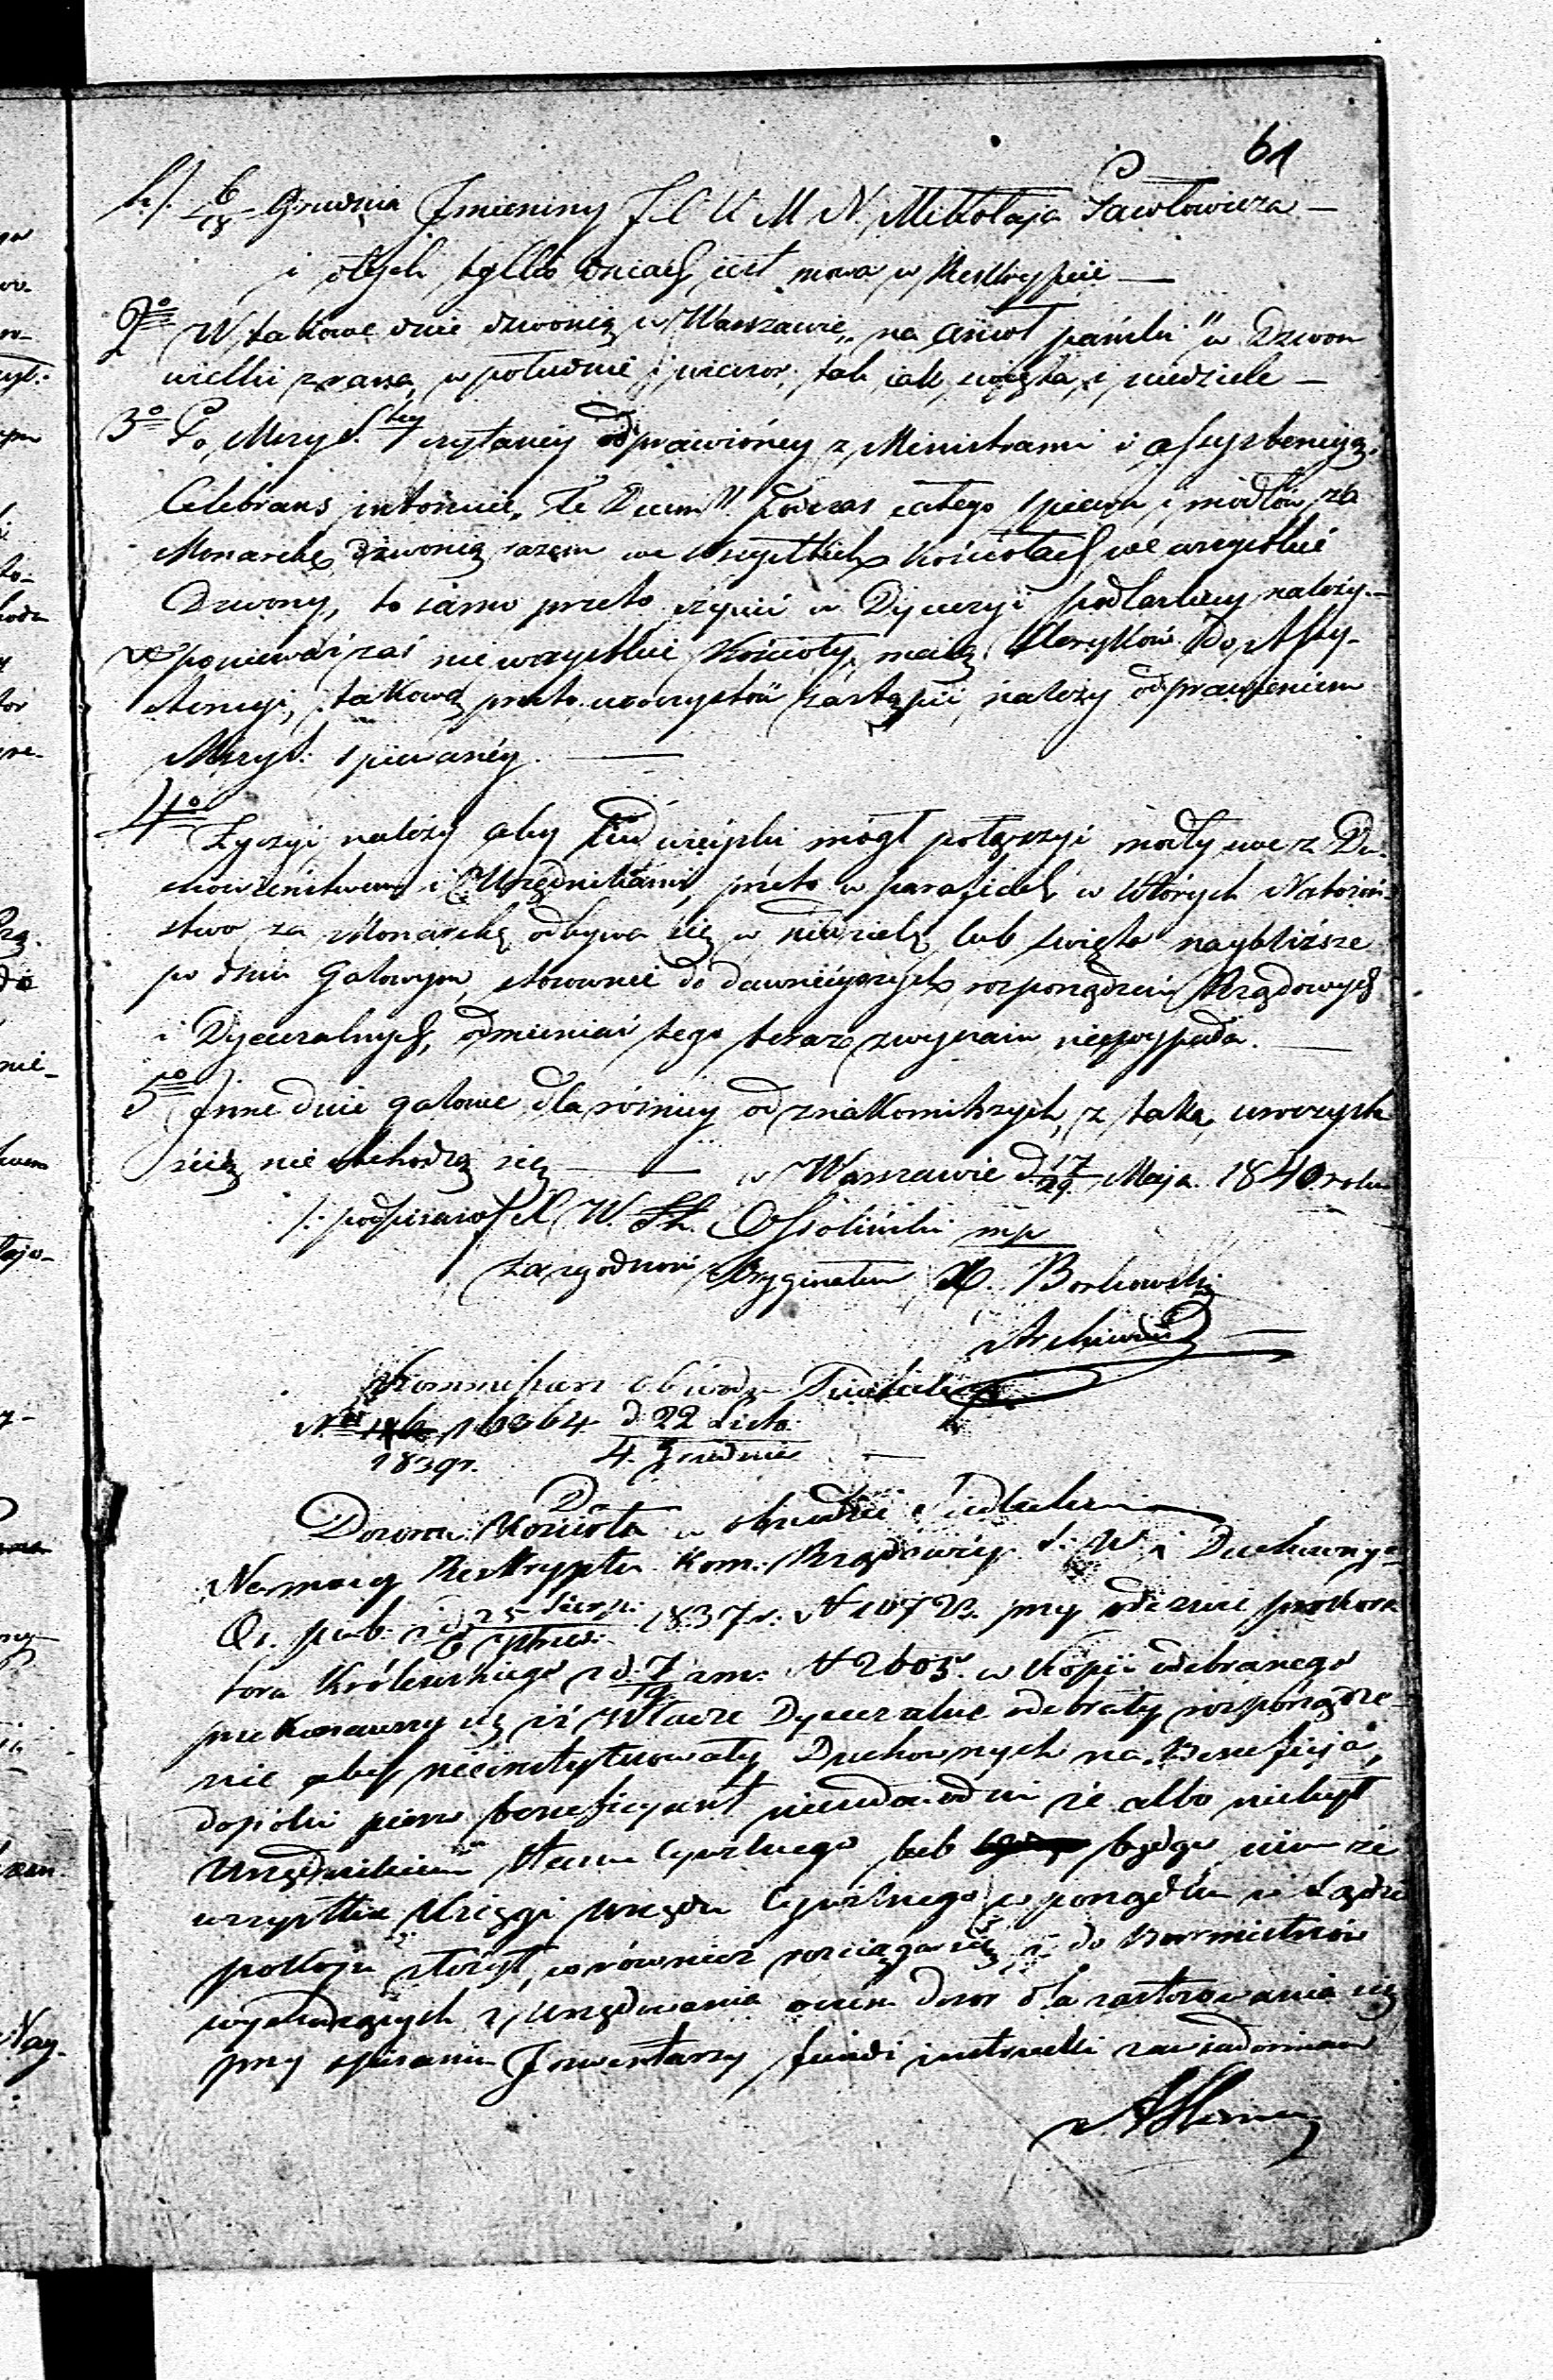 61
h/. 6/18 Grudnia Imieniny J C K M N. Mikołaja Pawłowicza —
i otych tylko dniach jest mowa w Reskrypcie —
2o W takowe dnie dzwonią w Warszawie „na Anioł pański" w Dzwon
wielki z rana, w południe i wieczor, tak jak święta i niedziele —
3o Po Mszy S. czytaney odprawioney z Ministrami i assystencyą,
Celebrans intonuie „Te Deum" podczas całego spiewu i modłów za
Monarchę dzwonią razem we wszystkich kościołach we wszystkie
Dzwony, to samo przeto czynić w Dyecezyi podlaskiey należy —
ponieważ zaś nie wszystkie Kościoły maią Kleryków do Assy-
stencyi, takową przeto uroczystość zastąpić należy odprawieniem
Mszy S. spiewanéy. —
4o Życzyć należy aby lud wieyski mógł połączyć modły swe z Du-
chowieństwem i Urzędnikami, przeto w parafiach w których Nabożeń-
stwo za Monarchę odbywa się w niedzielę lub święto naybliższe
po dniu Galowym, stosownie do dawnieyszych rozporządzeń Rządowych
i Dyecezalnych, odmieniać tego teraz zwyczaiu niewypada. —
5o Inne dnie galowe dla różnicy od znakomitszych, z taką uroczysto
ścią nie obchodzą się — w Warszawie d. 17/29 Maja 1840 roku
/: podpisano / X W. Ossoliński mp
za zgodność z Oryginałem X. Borkowski
Archiwista
Kommissarz obwodu Siedleckiego
N 16364 d. 22 Listo.
1839r. 4. Grudnia —
Do
Dozoru Kościoła w obwodzie Siedleckim
Na mocy Reskryptu Kom. Rządowéy S. W. i Duchownych
Os. pub. z d. 25 Sierp. 1837 r. N przy odezwie prokura
6 Wrześ.
tora Królewskiego z d. 7/19 am. N 2605. w kopii odebranego
przekonawszy się iż Władze Dyecezalne odebrały rozporządze
nie aby nieinstytuowały Duchownych na Beneficyja,
dopóki pierw beneficyant nieudowodni że albo niebył
Urzędnikiem Stanu Cywilnego lub będąc nim że
wszystkie Księgi Urzędu Cywilnego w porządku w Sądzie
pokoju złożył, co również rozciąga się i do Burmistrzów
wychodzących z urzędowania o czem dozor dla zastosowania się
przy spisaniu Inwentarzy fundi instructi zawiadamiam